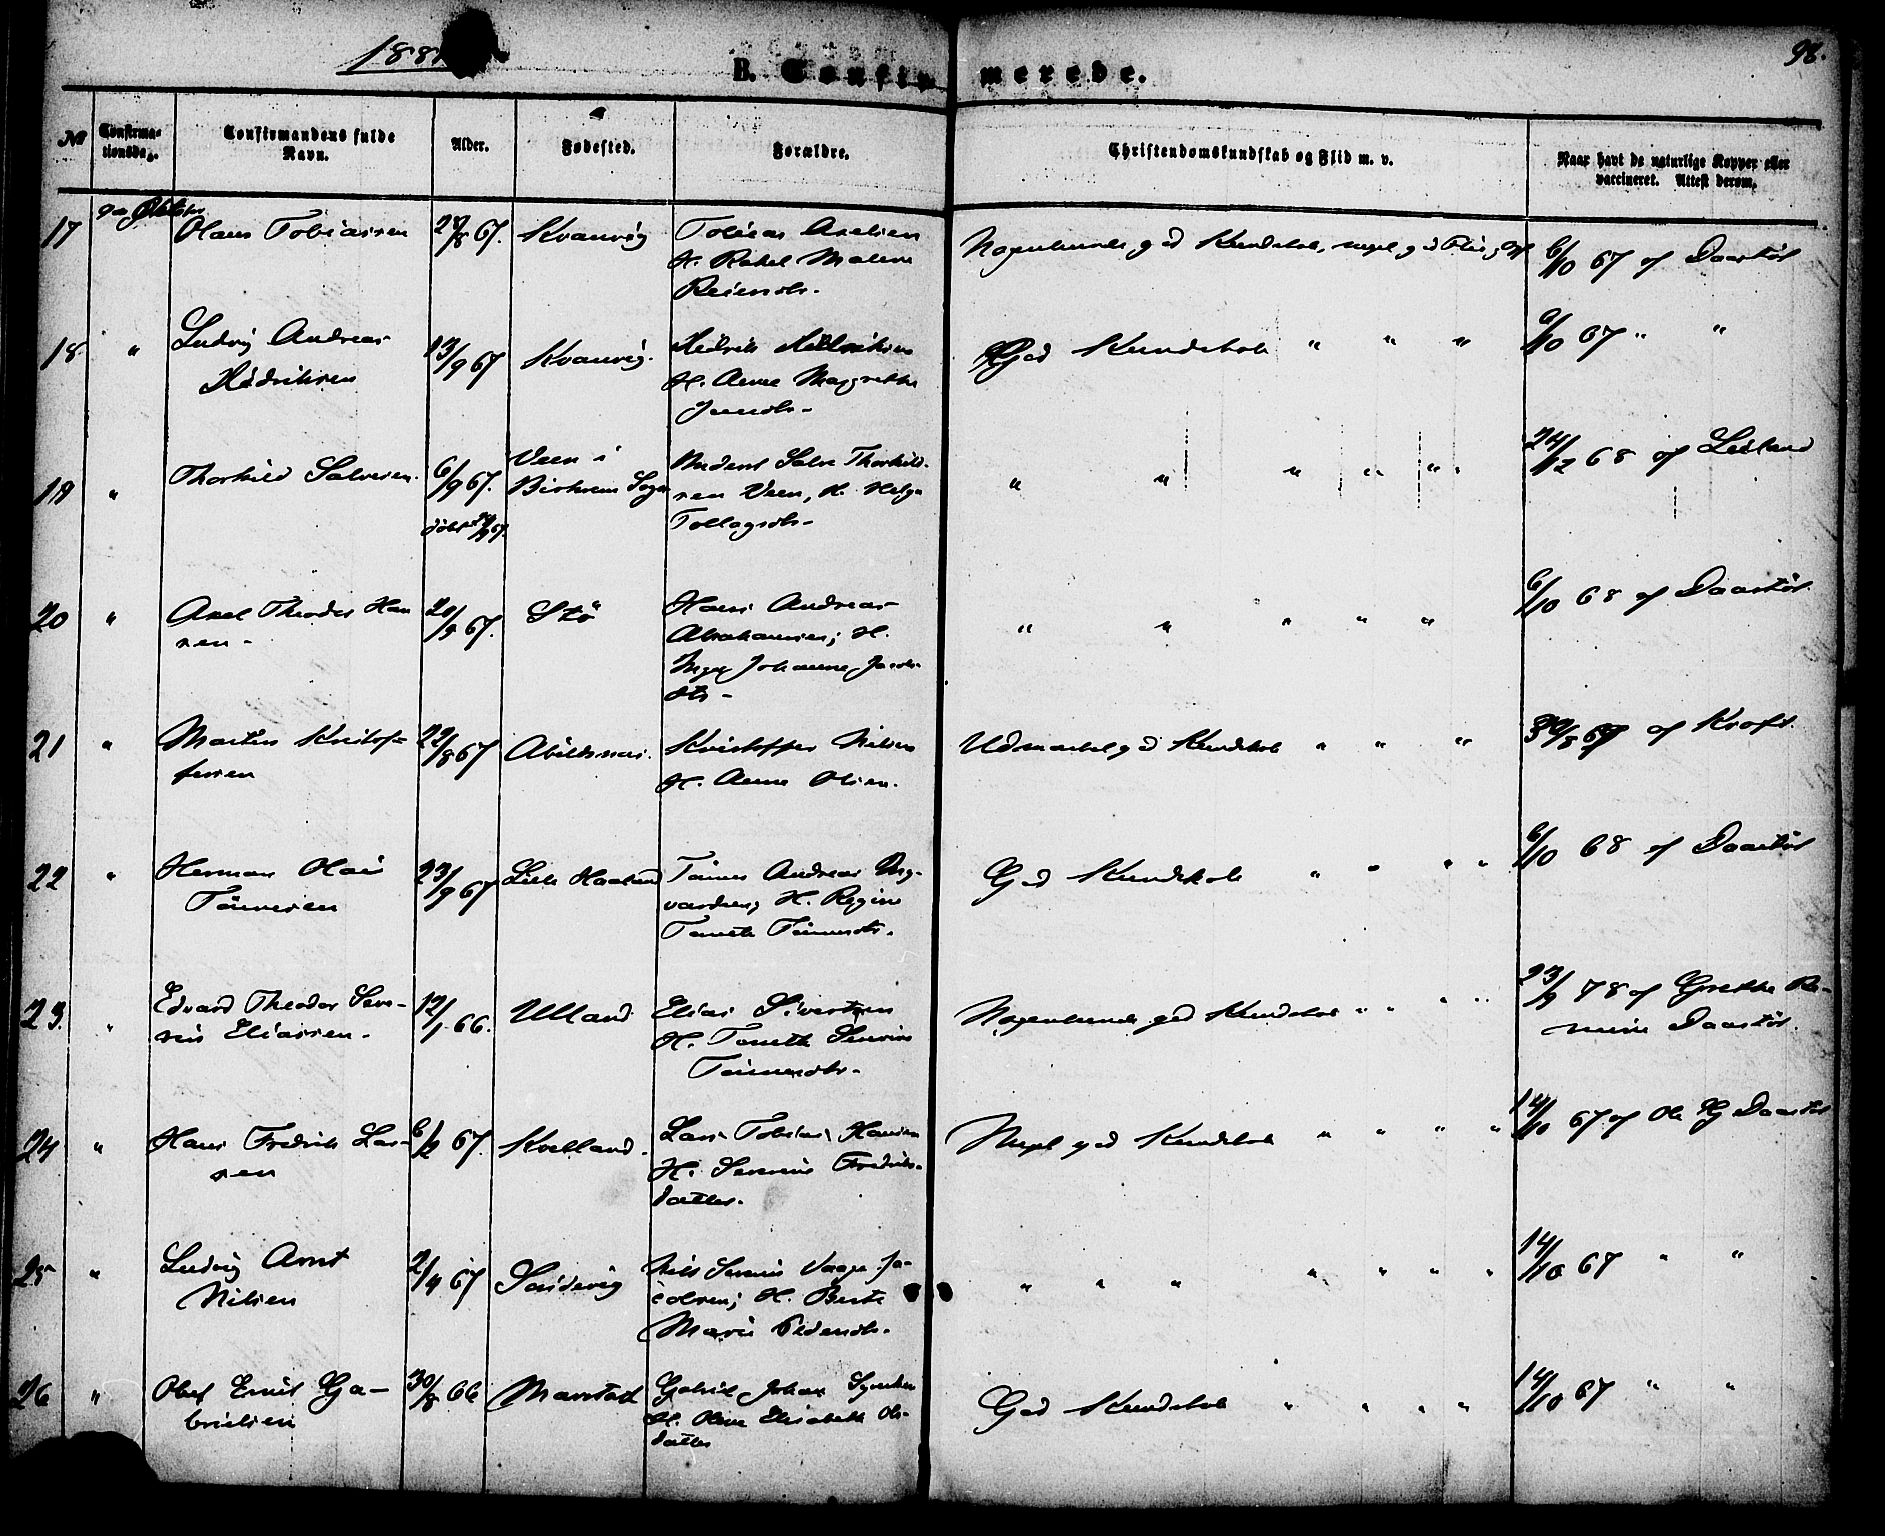 188
B. Confirmerede.
98.
No
Confirmationsdag.
Confirmandens fulde Navn.
Alder.
Fødested.
Forældre.
Christendomskundskab og Flid m. v.
Naar havt de naturlige Kopper eller vaccineret. Attest derom.
17
Oktober
Olaus Tobiassen
28/8 67.
Kvanvig
Tobias Axelsen
H. Rakel Malene
Reiersdtr.
Nogenlunde god Kundskab, meget god Flid og Opf
6/10 67 af Daastøl
18
"
Ludvig Andreas
Hedriksen
13/9 67
Kvanvig.
Hedrik Hedriksen
H. Anne Magrethe
God Kundskab " " "
6/10 67 " "
19
"
Thorkild Salvesen.
6/9 67.
døbt
Veen i
Birkrem Sogn
Salve Thorkild-
sen Veen, H. Helga
Tollagsdtr.
" " " " "
24/12 68 af Leiland
20
"
Axel Theodor Han
sen -
20/9 67.
Stö
Hans Andreas
Abrahamsen; H.
Inger Johanne Jacobs
dtr -
" " " " "
6/10 68 af Daastøl
21
"
Martin Kristof-
fersen
22/8 67
Abildsnæs.
Kristoffer Nilsen
H. Anne Olsen.
Udmærket god Kundskab " " "
af Kraft.
22
"
Herman Olai
Tönnesen
23/9 67
Lille Haaland
Tönnes Andreas Ing-
valdsen; H. Regine
Tonette Tönnesdtr.
God Kundskab " " " "
6/10 68 af Daastøl
23.
"
Edvard Theodor Seve-
rin Eliassen -
12/1 66.
Ulland
Elias Sivertsen
H. Tonette Severine
Tönnesdtr -
Nogenlunde god Kundskab " " " "
23/9 78 af Grethe Ra-
mine Daastøl.
24
"
Hans Fredrik Lar-
sen
6/2 67.
Kvelland.
Lars Tobias Hansen
H. Severine Fredriks-
datter.
Meget god Kundskab " " " "
14/10 67 af Ole G Daastøl
25
"
Ludvig Arnt
Nilsen
2/4 67
Sandvig
Nils Severin Vaage Ja-
cobsen; H. Berte
Marie Pedersdtr.
" " " " " " "
14/10 67 " "
26
"
Olaf Emil Ga-
brielsen
30/8 66
Marstad
Gabriel Johan
H. Oline Elisabeth Ols-
datter
God Kundskab " " " "
14/10 67 " "